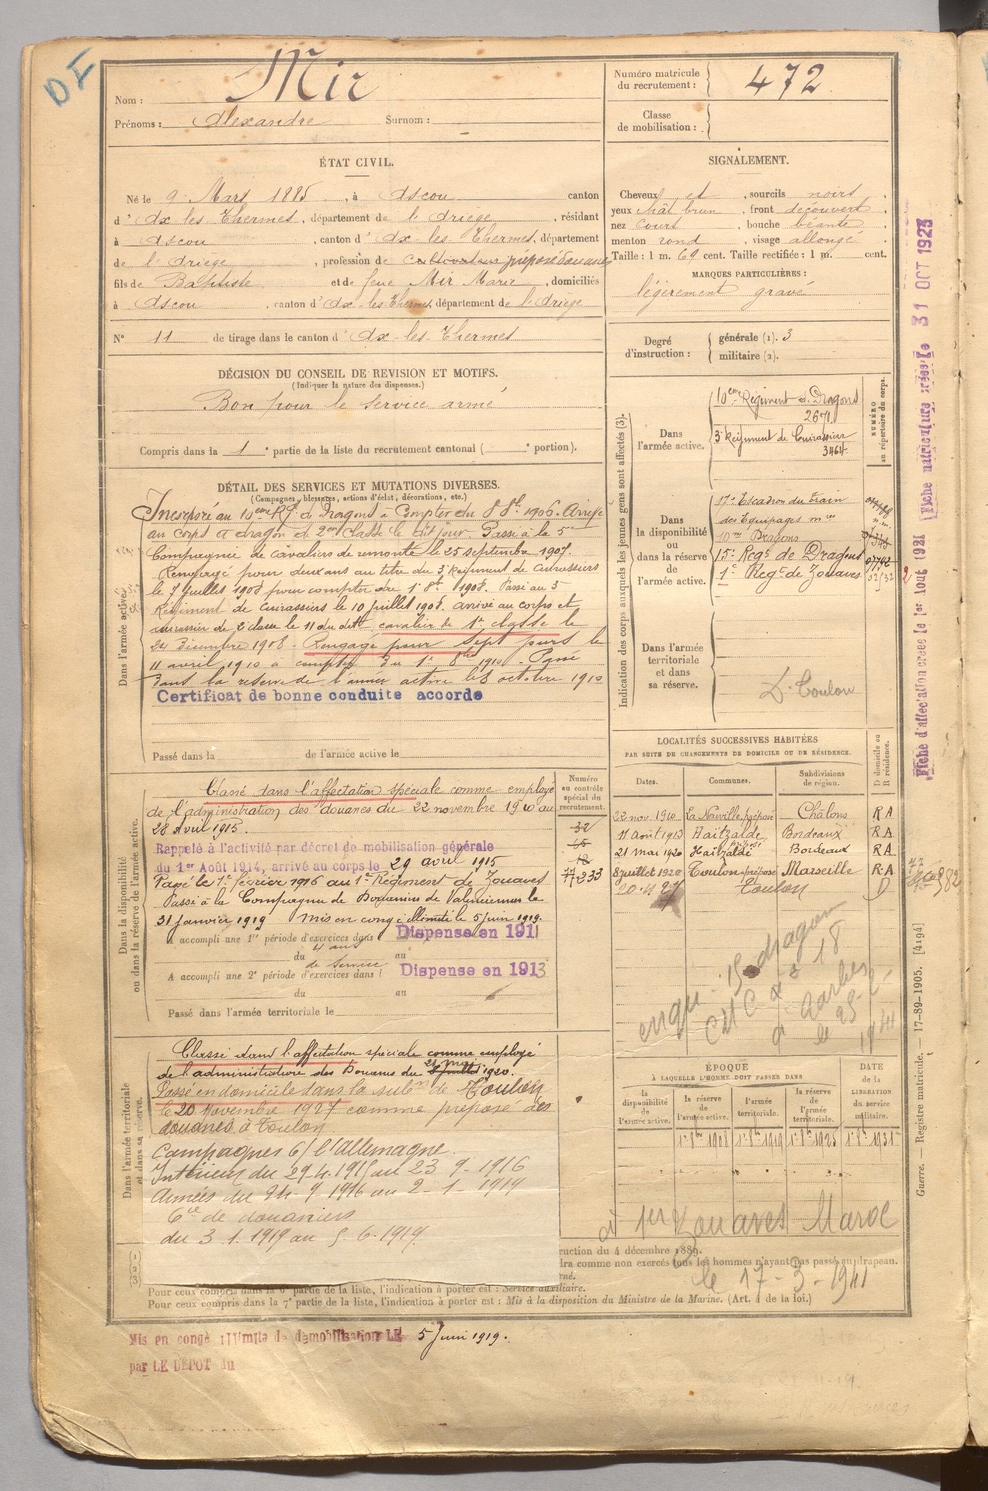 Nom : Mir
Prénoms : Alexandre Surnom :
Numéro matricule du recrutement : 472
Classe de mobilisation :
ÉTAT CIVIL.
Né le 9 Mars 1885, à Ascou canton
d'Ax les Thermes, département de l'Ariège, résidant
à Ascou, canton d'Ax-les-Thermes, département
de l'Ariège, profession de Cultivateur préposé douanes
fils de Baptiste et de feue Mir Marie, domiciliés
à Ascou, canton d'Ax-les-Thermes, département de l'Ariège
N° 11 de tirage dans le canton d'Ax-les-Thermes
SIGNALEMENT.
Cheveux et , sourcils noirs
yeux chât brun , front découvert
nez court , bouche béante
menton rond , visage allongé
Taille : 1 m. 69 cent. Taille rectifiée : 1 m. cent.
MARQUES PARTICULIÈRES :
légèrement gravé
Degré d'instruction : générale (1). 3
militaire (2).
DÉCISION DU CONSEIL DE REVISION ET MOTIFS.
(Indiquer la nature des dispenses.)
Bon pour le service armé
Compris dans la 1 e partie de la liste du recrutement cantonal ( e portion).
DÉTAIL DES SERVICES ET MUTATIONS DIVERSES.
(Campagnes, blessures, actions d'éclat, décorations, etc.)
Dans l'armée active.
Incorporé au 10eme Rgt de Dragons à Compter du 8 8bre 1906. Arrivé
au corps et dragon de 2eme classe le dit jour. Passé à le 5e
Compagnie de cavaliers de remonte le 25 septembre 1907.
Rengagé pour deux ans au titre du 3e Régiment de Cuirassiers
le 7 juillet 1908 pour compter du 1er 8bre 1908. Passé au 3e
Régiment de Cuirassiers le 10 juillet 1908. arrivé au corps et
cuirassier de 2e classe le 11 du dit cavalier de 1e classe le
24 décembre 1908. Rengagé pour sept jours le
11 avril 1910 à compter du 1er 8bre 1910. Passé
dans la réserve de l'armée active le 8 octobre 1910
Certificat de bonne conduite accordé
Passé dans la de l'armée active le
Indication des corps auxquels les jeunes gens sont affectés (3).
NUMÉRO au répertoire du corps.
Dans l'armée active.
10eme Régiment de Dragons
2671
3e Régiment de Cuirassiers
3464
Dans la disponibilité ou dans la réserve de l'armée active.
17e Escadron du train
des Equipages mres
10me Dragons
15e Regt de Dragons
1e Regt de Zouaves
Dans l'armée territoriale et dans sa réserve.
D. Toulon
LOCALITÉS SUCCESSIVES HABITÉES
PAR SUITE DE CHANGEMENTS DE DOMICILE OU DE RÉSIDENCE.
Dates. Communes. Subdivisions de région. D domicile ou R résidence.
22 nov. 1910 La Neuville préposé Châlons R A
11 août 1913 Haitzalde Bordeaux R A
21 mai 1920 Haitzaldé Bordeaux R A
8 juillet 1920 Toulon préposé Marseille R A
20.11.27 Toulon D
Dans la disponibilité ou dans la réserve de l'armée active.
Numéro au contrôle spécial du recrutement.
Classé dans l'affectation spéciale comme employé
de l'administration des douanes du 22 novembre 1910 au
28 Avril 1915.
Rappelé à l'activité par décret de mobilisation générale
du 1er Août 1914, arrivé au corps le 29 avril 1915
Passé le 1er février 1916 au 1e Régiment de Zouaves
Passé à la Compagnie de Douaniers de Valenciennes le
31 janvier 1919 mis en congé illimité le 5 juin 1919.
A accompli une 1re période d'exercices dans Dispense en 1911
du 4 ans de service au
A accompli une 2e période d'exercices dans l Dispense en 1913
du au
Passé dans l'armée territoriale le
Dans l'armée territoriale et dans sa réserve.
Classé dans l'affectation spéciale comme employé
de l'administration des Douanes du 21 mai 1920.
Passé en domicile dans la subon de Toulon
le 20 Novembre 1927 comme préposé des
douanes à Toulon
Campagnes c/ l'Allemagne.
Intérieur du 29-4-1915 au 23-9-1916
Armées du 24-9-1916 au 2-1-1919
Cie de douaniers
du 3.1.1919 au 5.6.1919.
15 dragon
le 25-2-1941
ÉPOQUE
À LAQUELLE L'HOMME DOIT PASSER DANS
la disponibilité de l'armée active.
la réserve de l'armée active.
l'armée territoriale.
la réserve de l'armée territoriale.
DATE de la LIBÉRATION du service militaire.
1er 8bre 1908 1er 8bre 1919 1er 8bre 1925 1er 8bre 1931
1er Zouaves Maroc
le 17-3-1941
ruction du 4 décembre 1889.
dra comme non exercés tous les hommes n'ayant pas passé au drapeau.
Pour ceux compris dans la 6e partie de la liste, l'indication à porter est : Service auxiliaire.
Pour ceux compris dans la 7e partie de la liste, l'indication à porter est : Mis à la disposition du Ministre de la Marine. (Art. 4 de la loi.)
Mis en congé illimité de démobilisation LE 5 Juin 1919.
par LE DÉPOT du
Guerre. — Registre matricule. — 17-89-1905. [4194]
Fiche d'affectation créée le 1er Août 1921
Fiche matriculaire créée le 31 OCT 1923